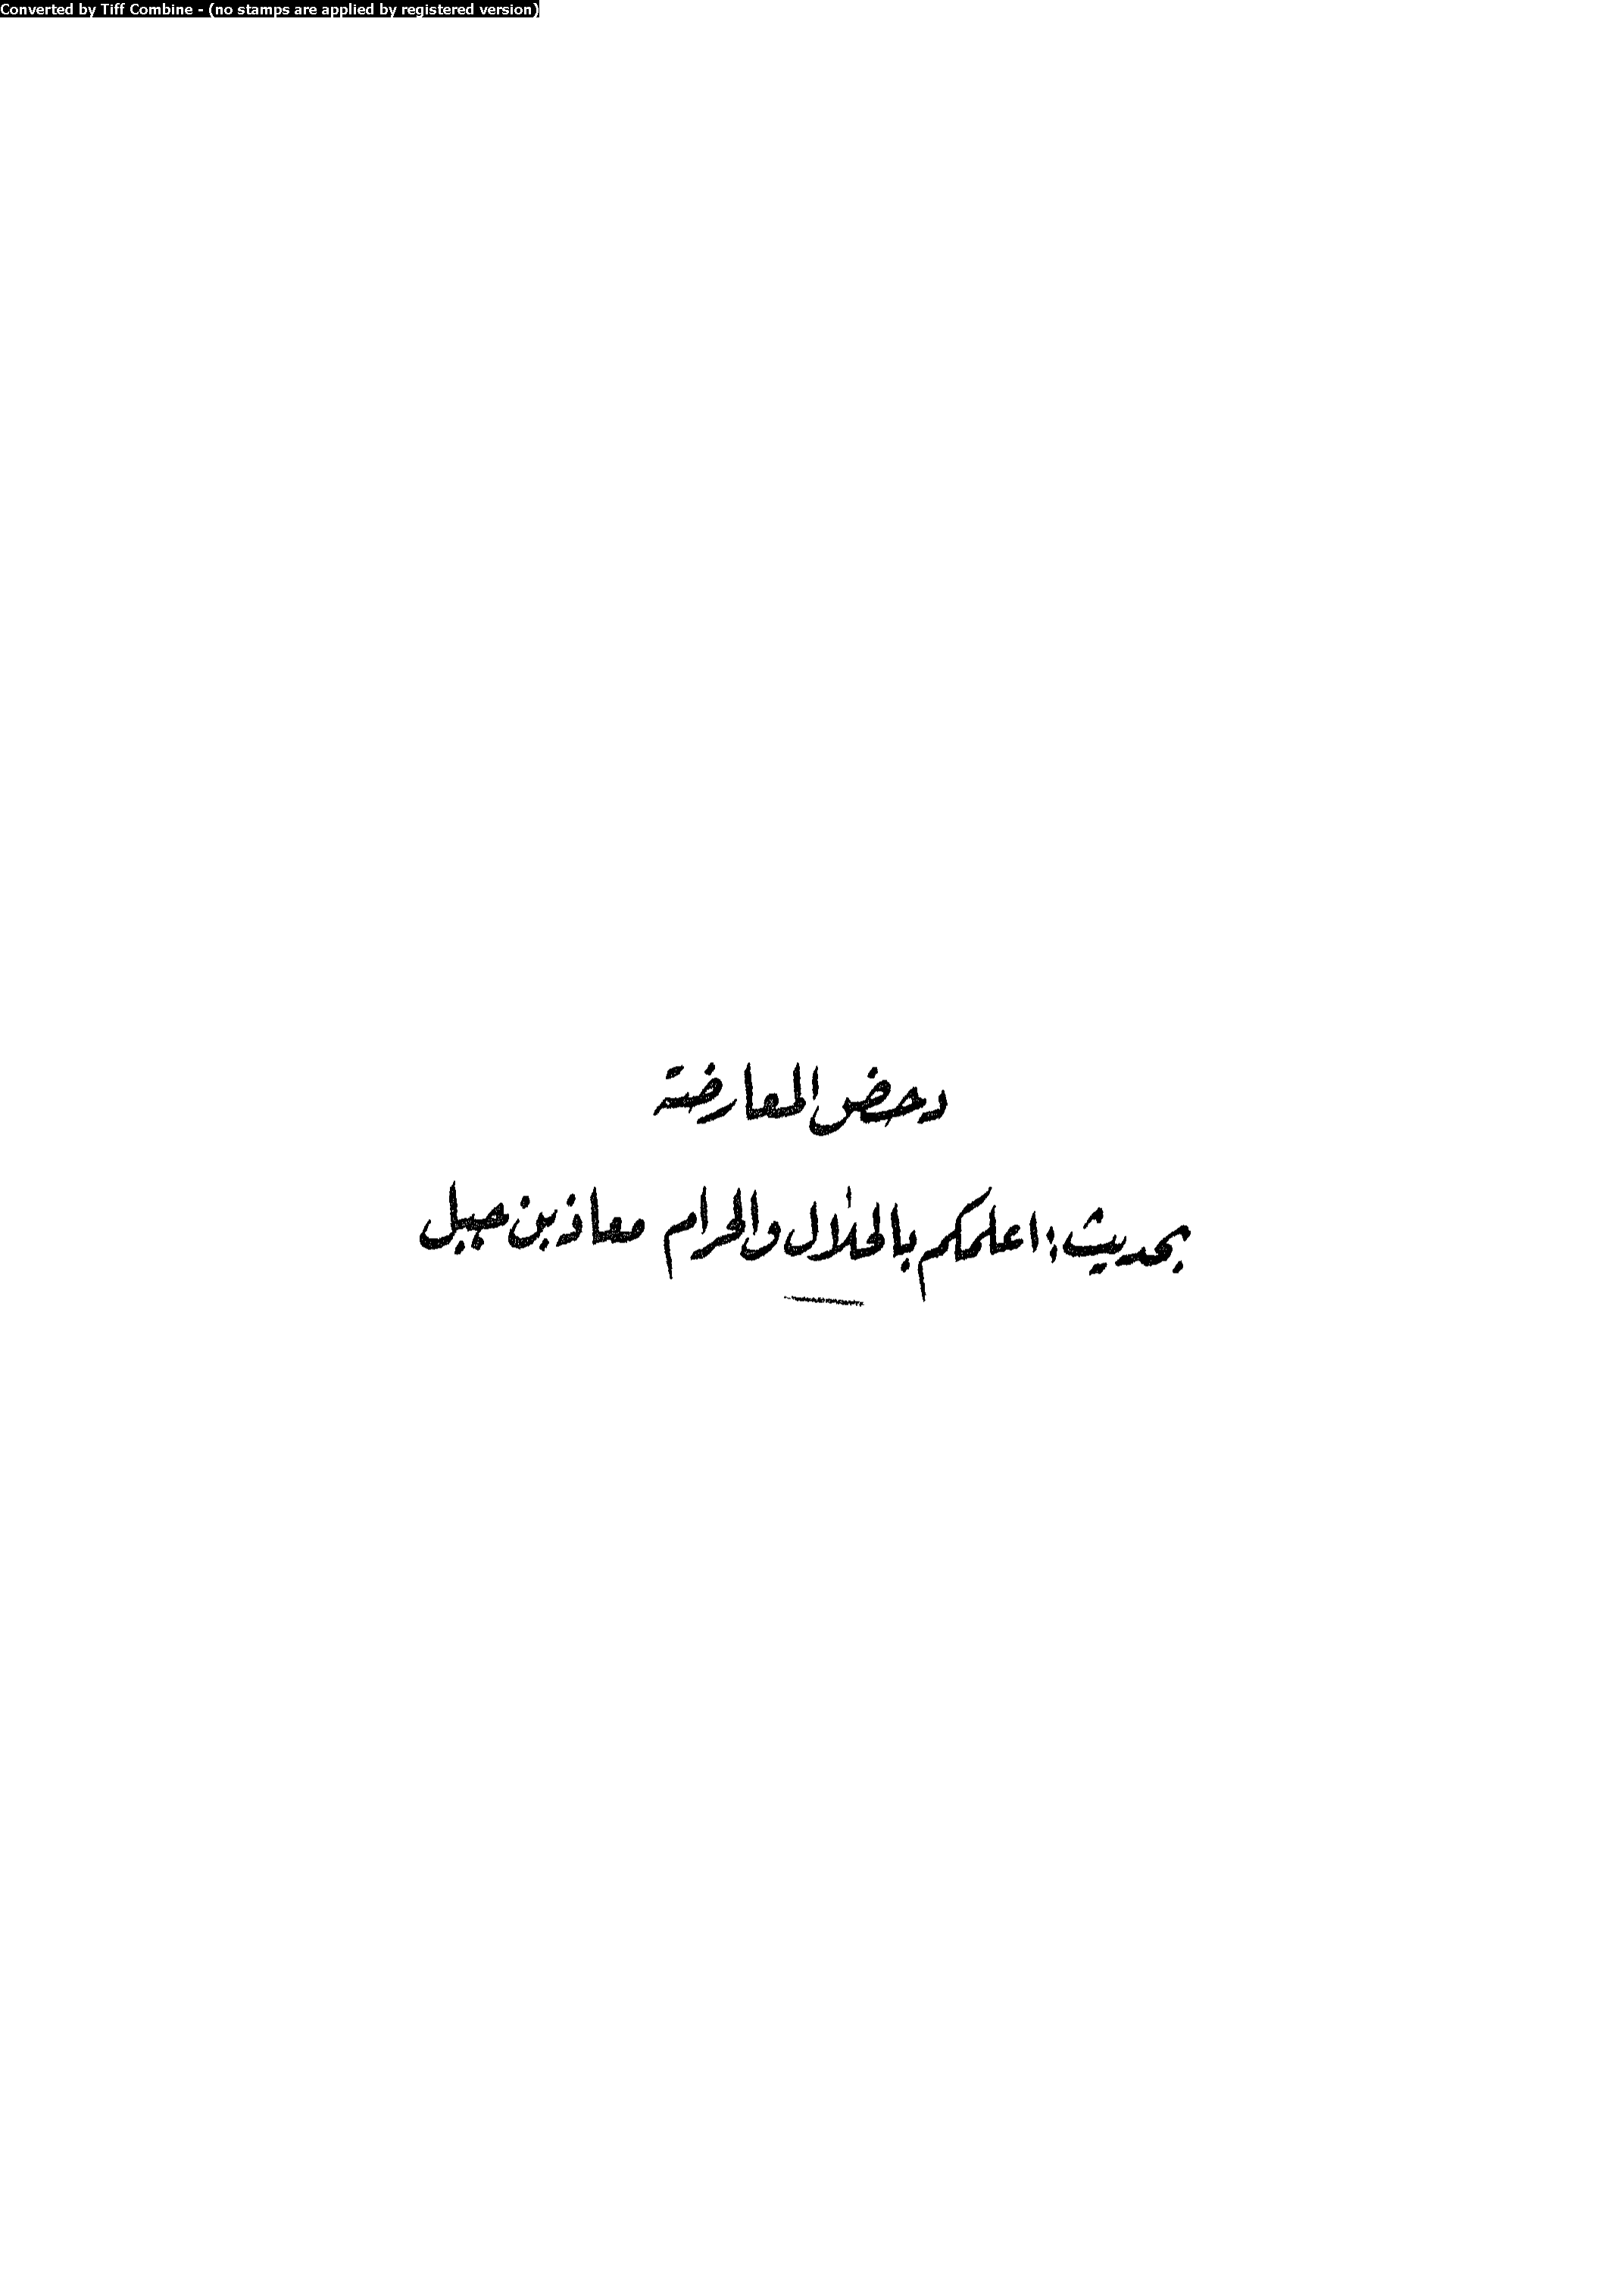 Converted by Tiff Combine - (no stamps are applied by registered version)
دحض المعارضة
بحديث: اعلمكم بالحلال والحرام معاذ بن جبل